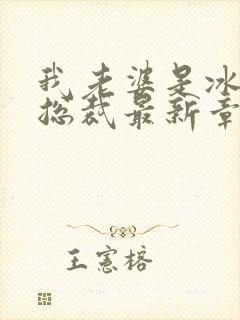 我老婆是冰
总裁最新章
王宪榕